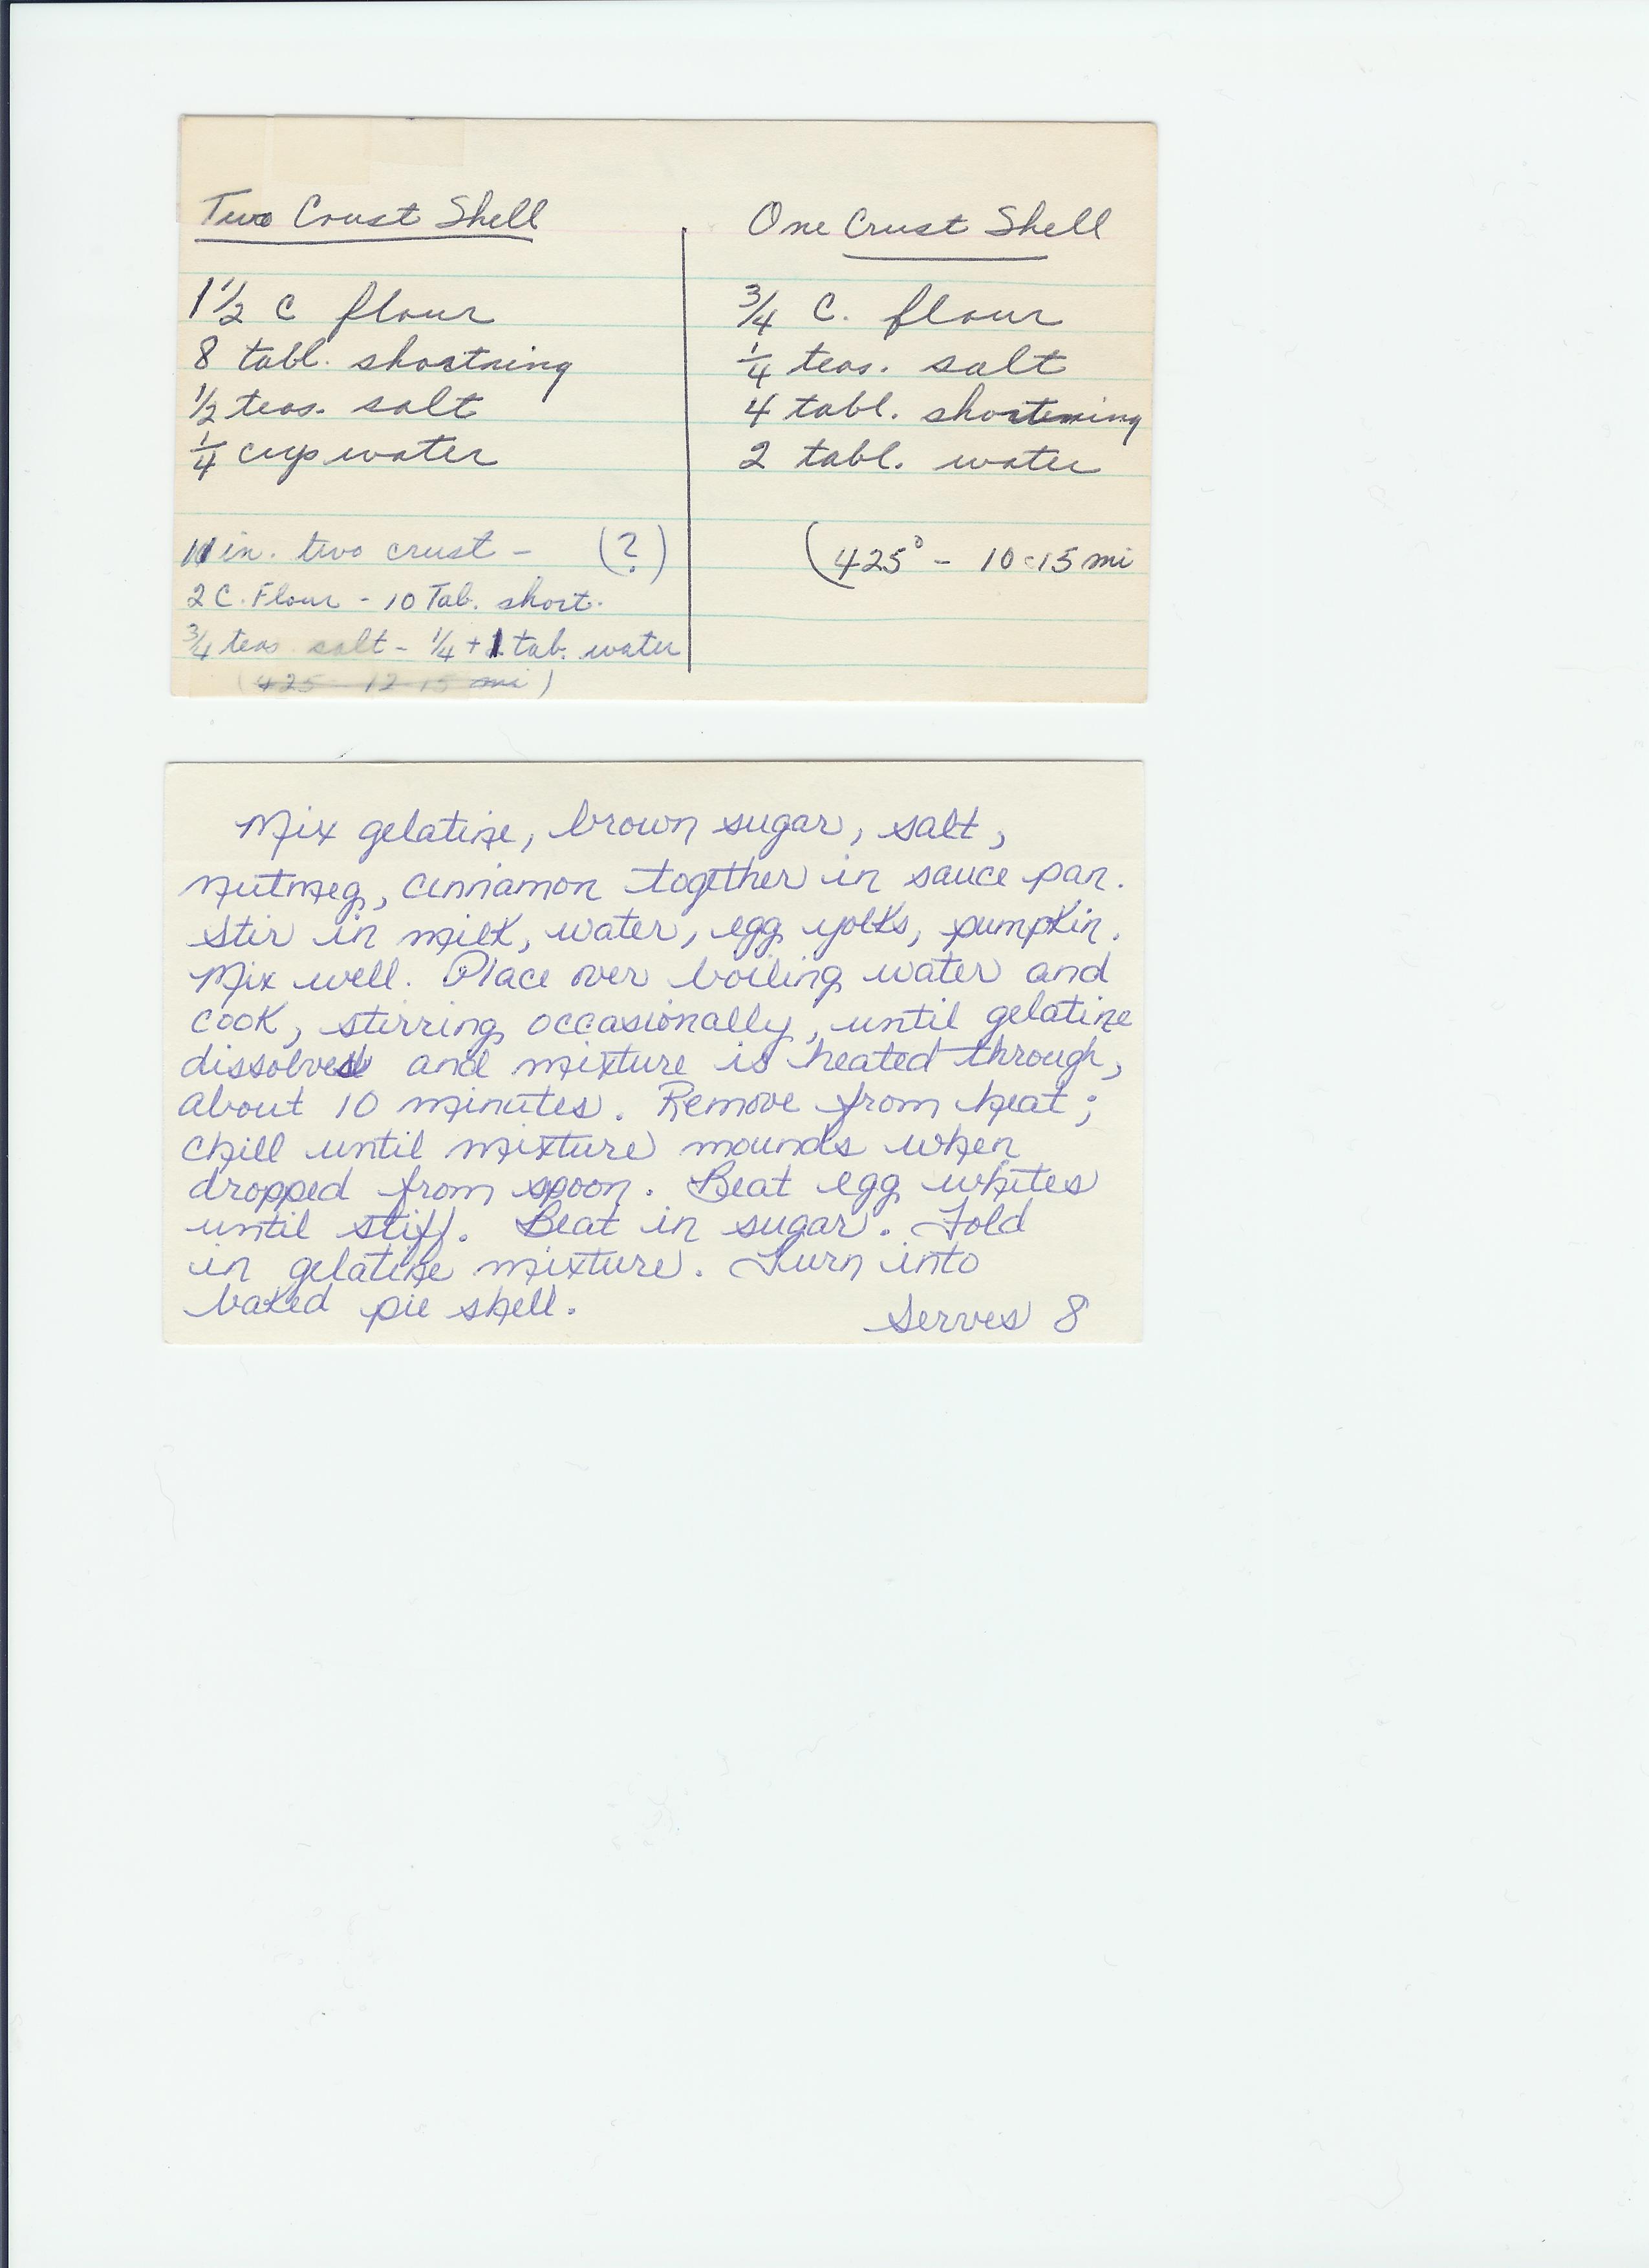 Two Crust Shell
1 1/2 C flour
8 tabl. shortning
1/2 teas. salt
1/4 cup water
11 in. two crust - (?)
2 C. Flour - 10 Tab. short.
3/4 teas salt - 1/4 + 1 tab. water
(425 - 12-15 mi)
One Crust Shell
3/4 C. flour
1/4 teas. salt
4 tabl. shortening
2 tabl. water
(425° - 10-15 mi
Mix gelatine, brown sugar, salt,
nutmeg, cinnamon together in sauce pan.
Stir in milk, water, egg yolks, pumpkin.
Mix well. Place over boiling water and
cook, stirring occasionally, until gelatine
dissolves and mixture is heated through,
about 10 minutes. Remove from heat;
chill until mixture mounds when
dropped from spoon. Beat egg whites
until stiff. Beat in sugar. Fold
in gelatine mixture. Turn into
baked pie shell.
Serves 8